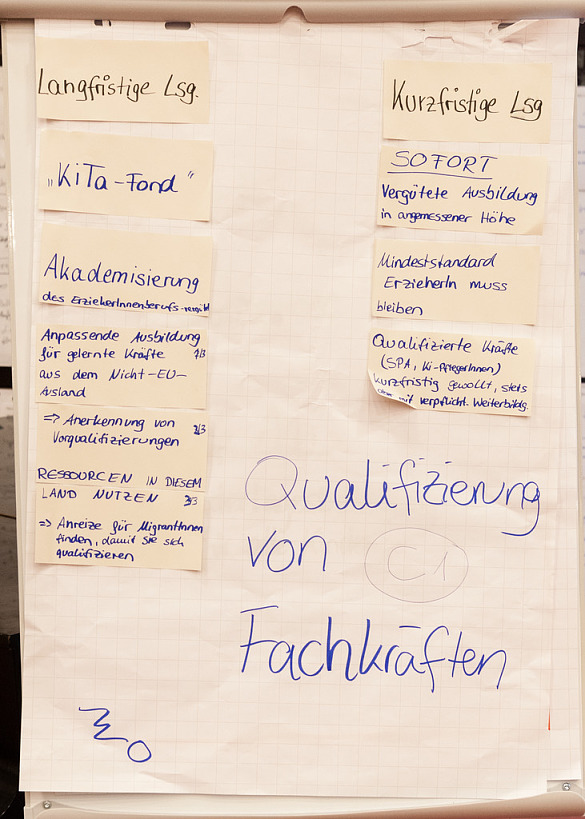 Langfristige Lsg.
„KiTa-Fond“
Akademisierung
des ErzieherInnenberufs
Anpassende Ausbildung
für gelernte Kräfte 1/3
aus dem Nicht-EU-
Ausland
⇒ Anerkennung von 2/3
Vorqualifizierungen
RESSOURCEN IN DIESEM
LAND NUTZEN 3/3
⇒ Anreize für MigrantInnen
finden, damit sie sich
qualifizieren
Kurzfristige Lsg
SOFORT
Vergütete Ausbildung
in angemessener Höhe
Mindeststandard
ErzieherIn muss
bleiben
Qualifizierte Kräfte
(SPA, Ki-PflegerInnen)
kurzfristig gewollt, stets
mit verpflicht. Weiterbildg.
Qualifizierung
von C1
Fachkräften